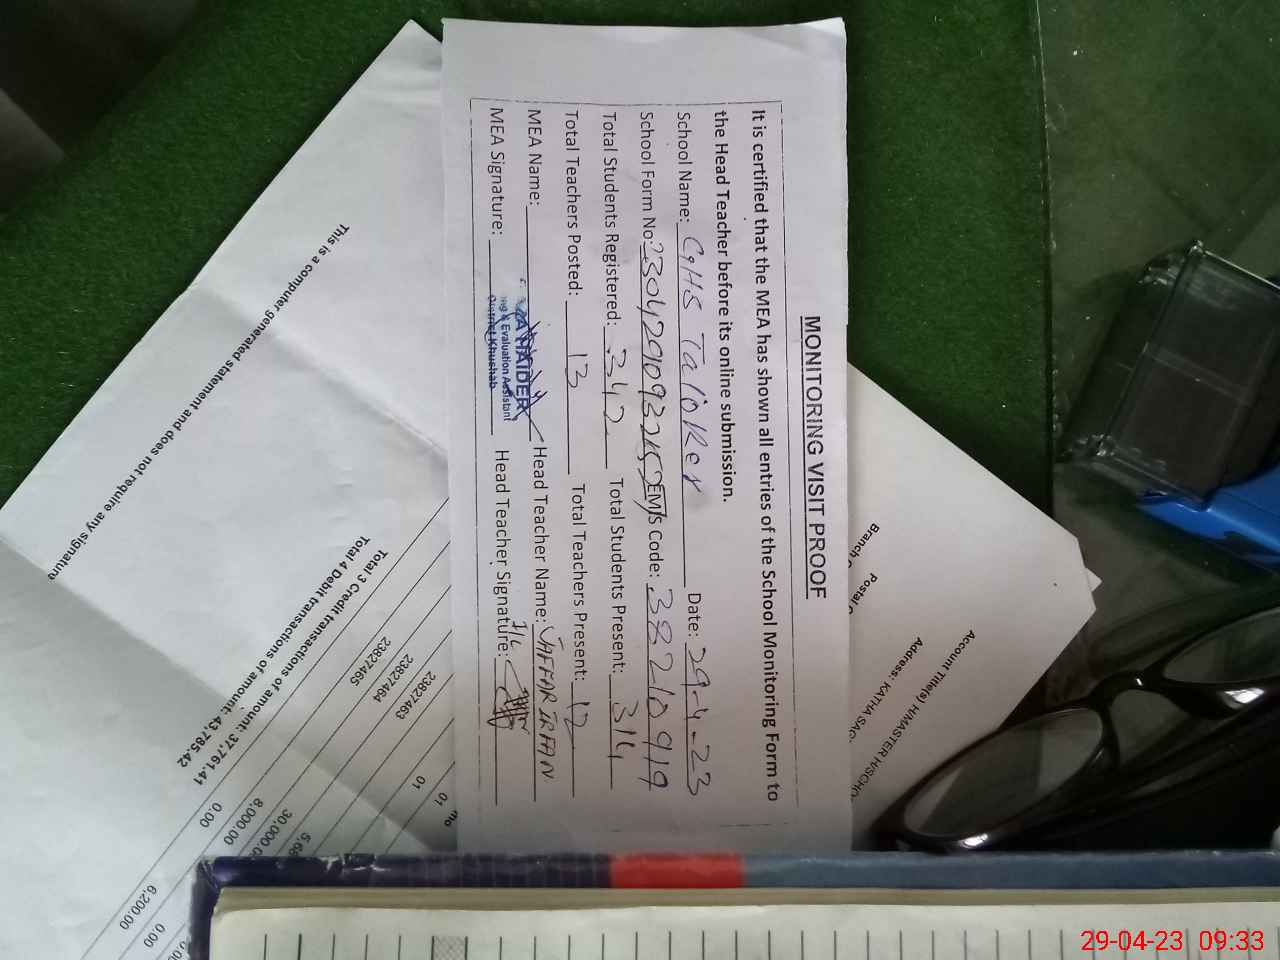 MONITORING VISIT PROOF
It is certified that the MEA has shown all entries of the School Monitoring Form to
the Head Teacher before its online submission.
School Name: GHS Taloker Date: 29-4-23
School Form No: EMIS Code: 38210919
Total Students Registered: 342 Total Students Present: 314
Total Teachers Posted: 13 Total Teachers Present: 12
MEA Name: HAIDER Head Teacher Name: JAFFAR IRFAN
& Evaluation Assistant
District Khushab
MEA Signature: Head Teacher Signature: I/C
This is a computer generated statement and does not require any signature
Total 4 Debit transactions of amount: 43,785.42
Total 3 Credit transactions of amount: 37,761.41
23827465
23827464
23827463
01
01
0.00
8,000.00
30,000.0
5,68
6,200.00
0.00
Branch
Postal
Account Title(s) H/MASTER H/SCHO
Address: KATHA SAG
29-04-23 09:33